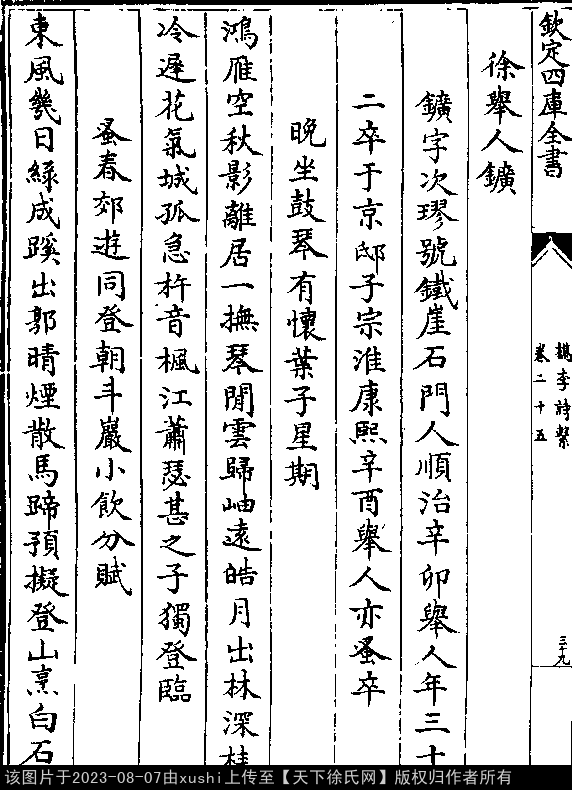 欽定四庫全書
檇李詩繫
卷二十五
三十九
徐舉人鑛
鑛字次璆號鐵崖石門人順治辛卯舉人年三十
二卒于京邸子宗淮康熙辛酉舉人亦蚤卒
晚坐鼓琴有懷葉子星期
鴻雁空秋影離居一撫琴閒雲歸岫遠皓月出林深桂
冷遲花氣城孤急杵音楓江蕭瑟甚之子獨登臨
蚤春郊遊同登朝斗巖小飲分賦
東風幾日綠成蹊出郭晴煙散馬蹄預擬登山烹白石
该图片于2023-08-07由xushi上传至【天下徐氏网】版权归作者所有